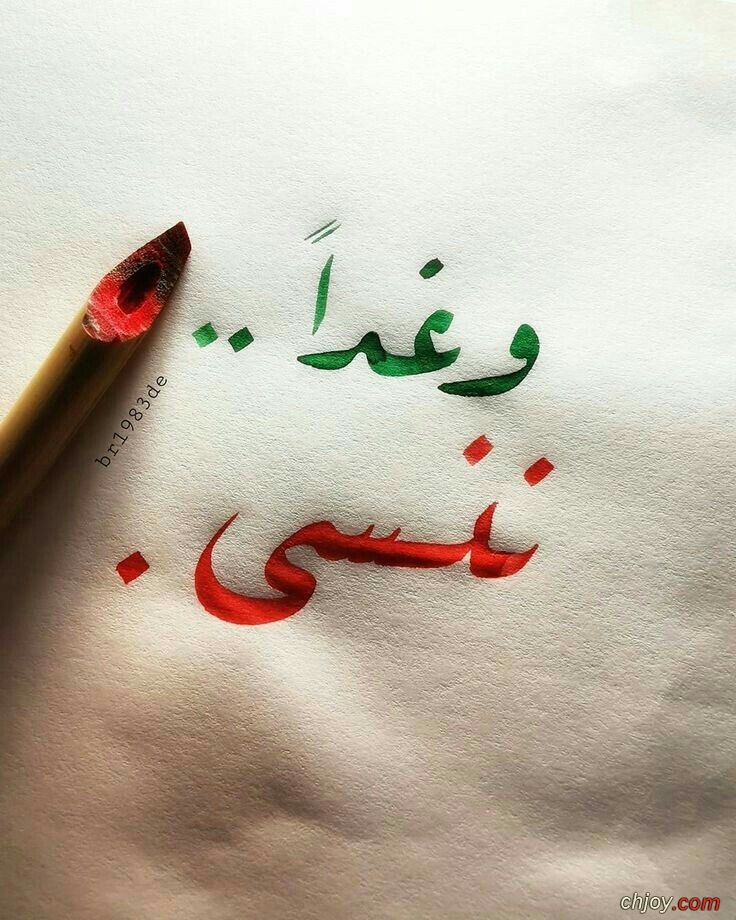 وغداً ..
ننسى .
br1983de
chjoy.com